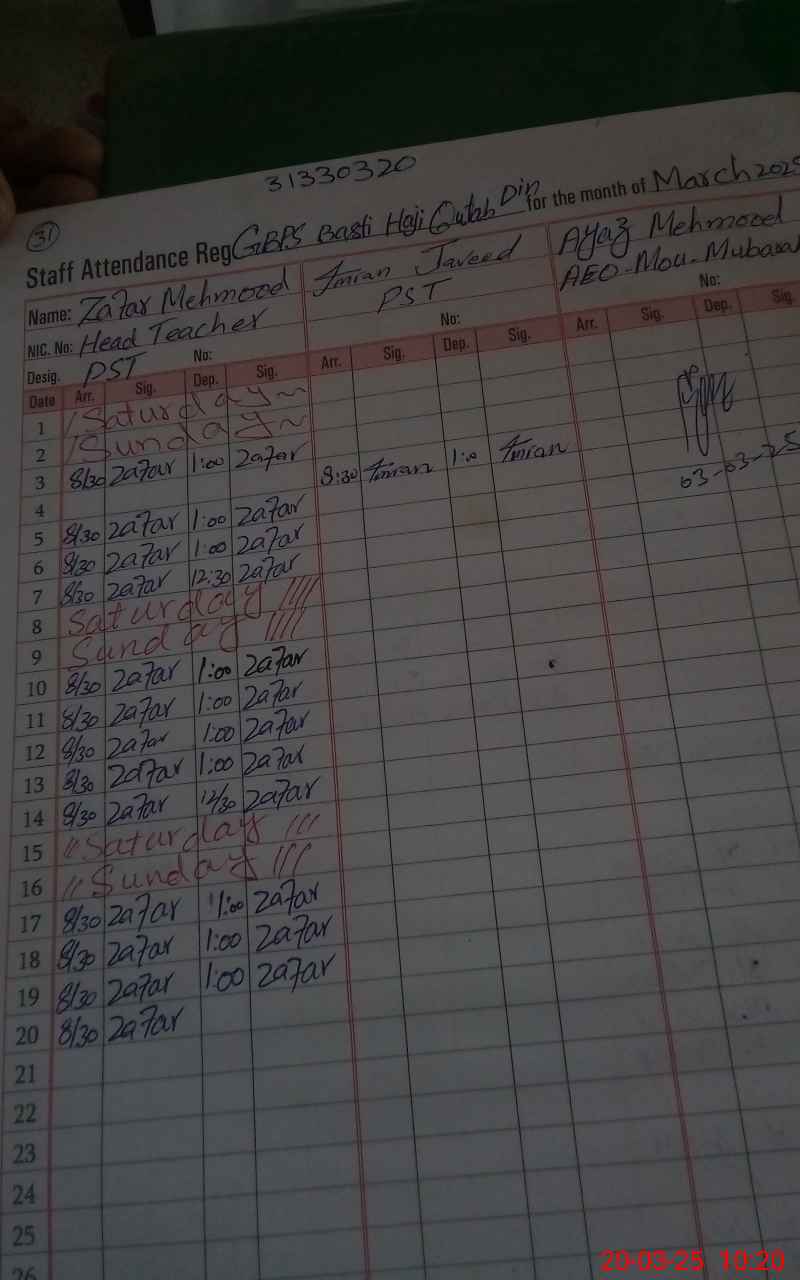 31330320
31
Staff Attendance Reg GBPS Basti Haji Qutab Din for the month of March 2025
Name: Zafar Mehmood Imran Javeed Ayaz Mehmood
NIC. No: Head Teacher PST AEO-Mou-Mubarak
Desig. PST No: No: No:
Date Arr. Sig. Dep. Sig. Arr. Sig. Dep. Sig. Arr. Sig. Dep. Sig.
1 Saturday
2 Sunday
3 8/30 Zafar 1:00 Zafar 8:30 Imran 1:0 Imran 03-03-25
4
5 8/30 Zafar 1:00 Zafar
6 8/30 Zafar 1:00 Zafar
7 8/30 Zafar 12:30 Zafar
8 Saturday
9 Sunday
10 8/30 Zafar 1:00 Zafar
11 8/30 Zafar 1:00 Zafar
12 8/30 Zafar 1:00 Zafar
13 8/30 Zafar 1:00 Zafar
14 8/30 Zafar 12/30 Zafar
15 Saturday
16 Sunday
17 8/30 Zafar 1:00 Zafar
18 8/30 Zafar 1:00 Zafar
19 8/30 Zafar 1:00 Zafar
20 8/30 Zafar
21
22
23
24
25
26
20-03-25 10:20